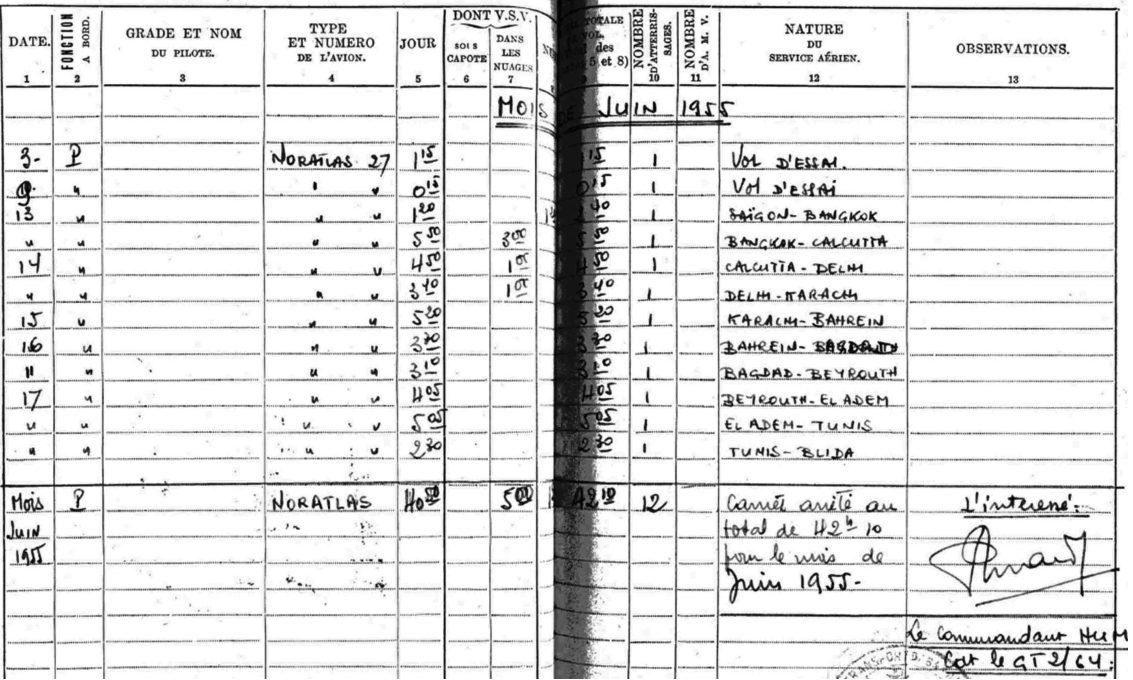 DATE. FONCTION A BORD. GRADE ET NOM DU PILOTE. TYPE ET NUMERO DE L'AVION. JOUR DONT V.S.V. SOUS CAPOTE DANS LES NUAGES TOTALE des 5 et 8) NOMBRE D'ATTERRISSAGES. NOMBRE D'A. M. V. NATURE DU SERVICE AÉRIEN. OBSERVATIONS.
1 2 3 4 5 6 7 10 11 12 13
MOIS DE JUIN 1955
3- P NORATLAS 27 1 15 15 1 VOL D'ESSAI.
9 " " " 0 15 0 15 1 VOL D'ESSAI
13 " " " 1 20 2 40 1 SAÏGON-BANGKOK
" " " " 5 50 3 00 5 50 1 BANGKOK-CALCUTTA
14 " " " 4 50 1 00 4 50 1 CALCUTTA-DELHI
" " " " 3 40 1 00 3 40 1 DELHI-KARACHI
15 " " " 5 20 5 20 1 KARACHI-BAHREIN
16 " " " 3 30 3 30 1 BAHREIN-BAGDAD
" " " " 3 10 3 10 1 BAGDAD-BEYROUTH
17 " " " 4 05 4 05 1 BEYROUTH-EL ADEM
" " " " 5 05 5 05 1 EL ADEM-TUNIS
" " " " 2 30 2 30 1 TUNIS-BLIDA
Mois P NORATLAS 40 50 5 00 42 10 12 Carnet arrêté au L'interessé:
JUIN total de 42h 10
1955 pour le mois de
Juin 1955-
Le Commandant HUM
Cdt le GT 2/64:
TRANSPORT